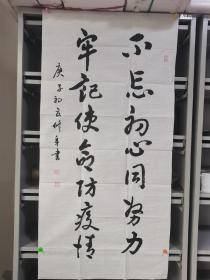 不忘初心同努力
牢记使命防疫情
庚子初立竹年书